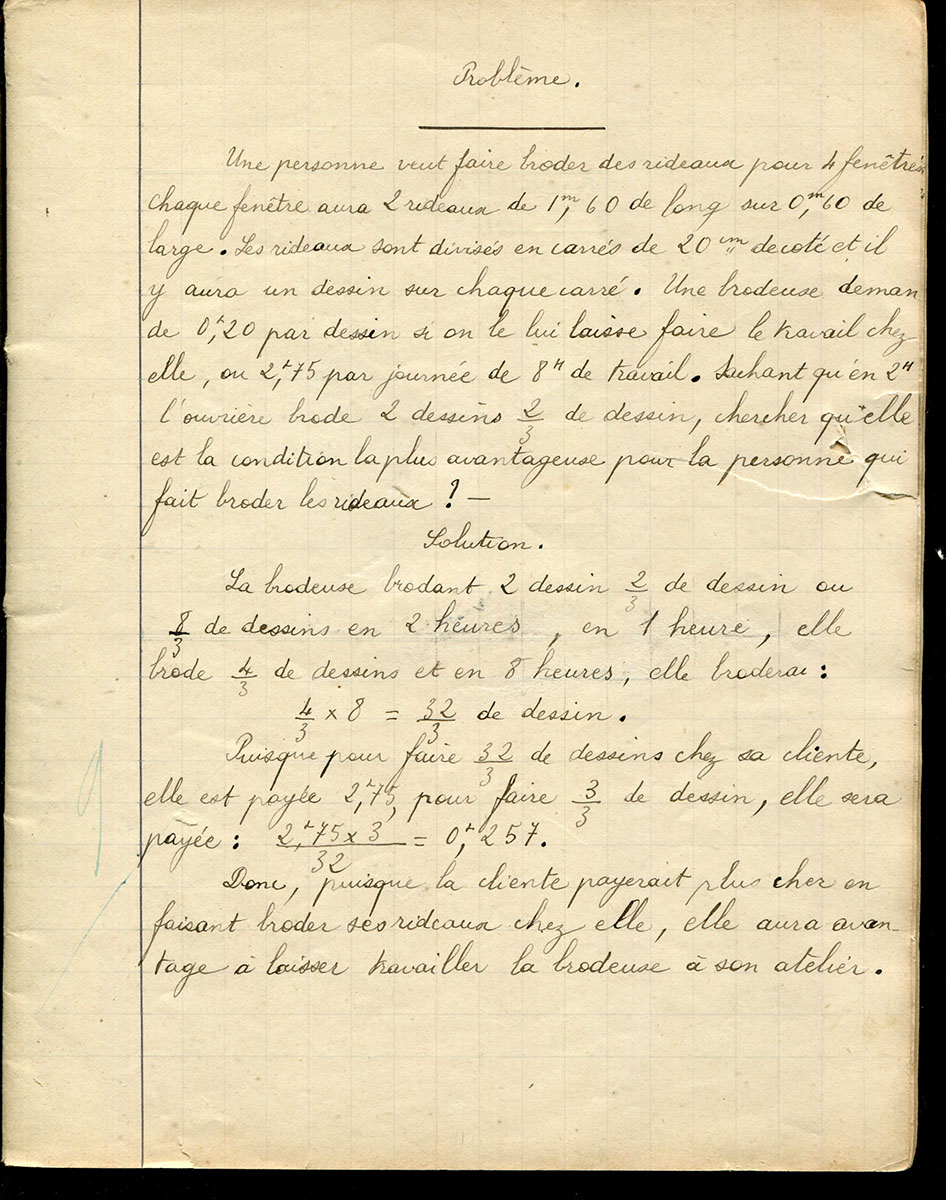 Problème.
Une personne veut faire broder des rideaux pour 4 fenêtres
chaque fenêtre aura 2 rideaux de 1m,60 de long sur 0,m60 de
large. Les rideaux sont divisés en carrés de 20 cm de coté et il
y aura un dessin sur chaque carré. Une brodeuse deman
de 0,f20 par dessin si on le lui laisse faire le travail chez
elle, ou 2,f75 par journée de 8H de travail. Sachant qu'en 2H
l'ouvrière brode 2 dessins 2/3 de dessin, chercher qu'elle
est la condition la plus avantageuse pour la personne qui
fait broder les rideaux ? —
Solution.
La brodeuse brodant 2 dessin 2/3 de dessin ou
8/3 de dessins en 2 heures, en 1 heure, elle
brode 4/3 de dessins et en 8 heures, elle broderai :
4/3 x 8 = 32/3 de dessin.
Puisque pour faire 32/3 de dessins chez sa cliente,
elle est payée 2,f75, pour faire 3/3 de dessin, elle sera
payée : 2,f75 x 3 / 32 = 0,f257.
Donc, puisque la cliente payerait plus cher en
faisant broder ses rideaux chez elle, elle aura avan-
tage à laisser travailler la brodeuse à son atelier.
9